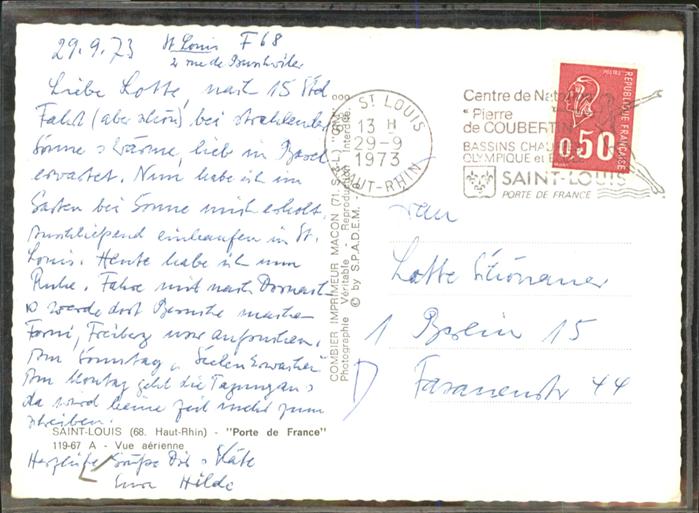 29.9.73 St Louis F 68
2 rue de
Liebe Lotte, nach 15 Std
Fahrt (aber schön) bei strahlender
Sonne & Wärme, lieb in Basel
erwartet. Nun habe ich im
Garten bei Sonne mich erholt.
Anschließend einkaufen in St.
Louis. Heute habe ich nun
Ruhe. Fahre mit nach Dornach
& werde dort Besuche machen
Freiberg
Am Sonntag
Am Montag geht die Tagung an &
da wird keine Zeit mehr zum
schreiben.
SAINT-LOUIS (68. Haut-Rhin) - "Porte de France"
119-67 A - Vue aérienne
Herzliche Grüße Dir & Käte
Eure Hilde
COMBIER IMPRIMEUR MACON (71, S.-&-L.) "CIM"
Photographie Véritable - Reproduction Interdite.
© by S.P.A.D.E.M.
ST LOUIS
13 H
29-9
1973
HAUT-RHIN
Centre de
"Pierre
de COUBERTIN
BASSINS
OLYMPIQUE et
SAINT-LOUIS
PORTE DE FRANCE
REPUBLIQUE FRANÇAISE
0,50
Frau
Lotte Schönauer
1 Berlin 15
D Fasanenstr 44